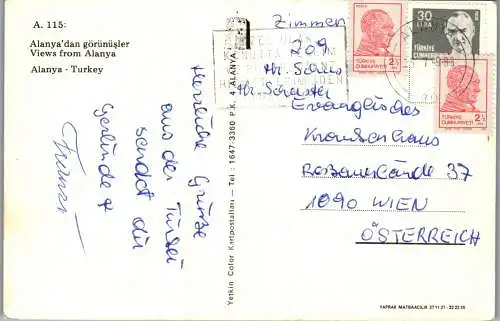 A. 115:
Alanya'dan görünüşler
Views from Alanya
Alanya - Turkey
Herzliche Grüße
aus der Türkei
sendet dir
Gerlinde &
Yetkin Color Kartpostalları — Tel : 1647-3360 P.K. 4 ALANYA
Zimmer
209
Evangelisches
Krankenhaus
Roßauerlände 37
1090 WIEN
ÖSTERREICH
TÜRKİYE
CUMHURİYETİ
2½
30
LİRA
TÜRKİYE
CUMHURİYETİ
TÜRKİYE
CUMHURİYETİ
2½
ALANYA